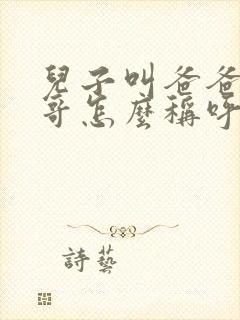 兒子叫爸爸
哥怎麼稱呼
詩藝